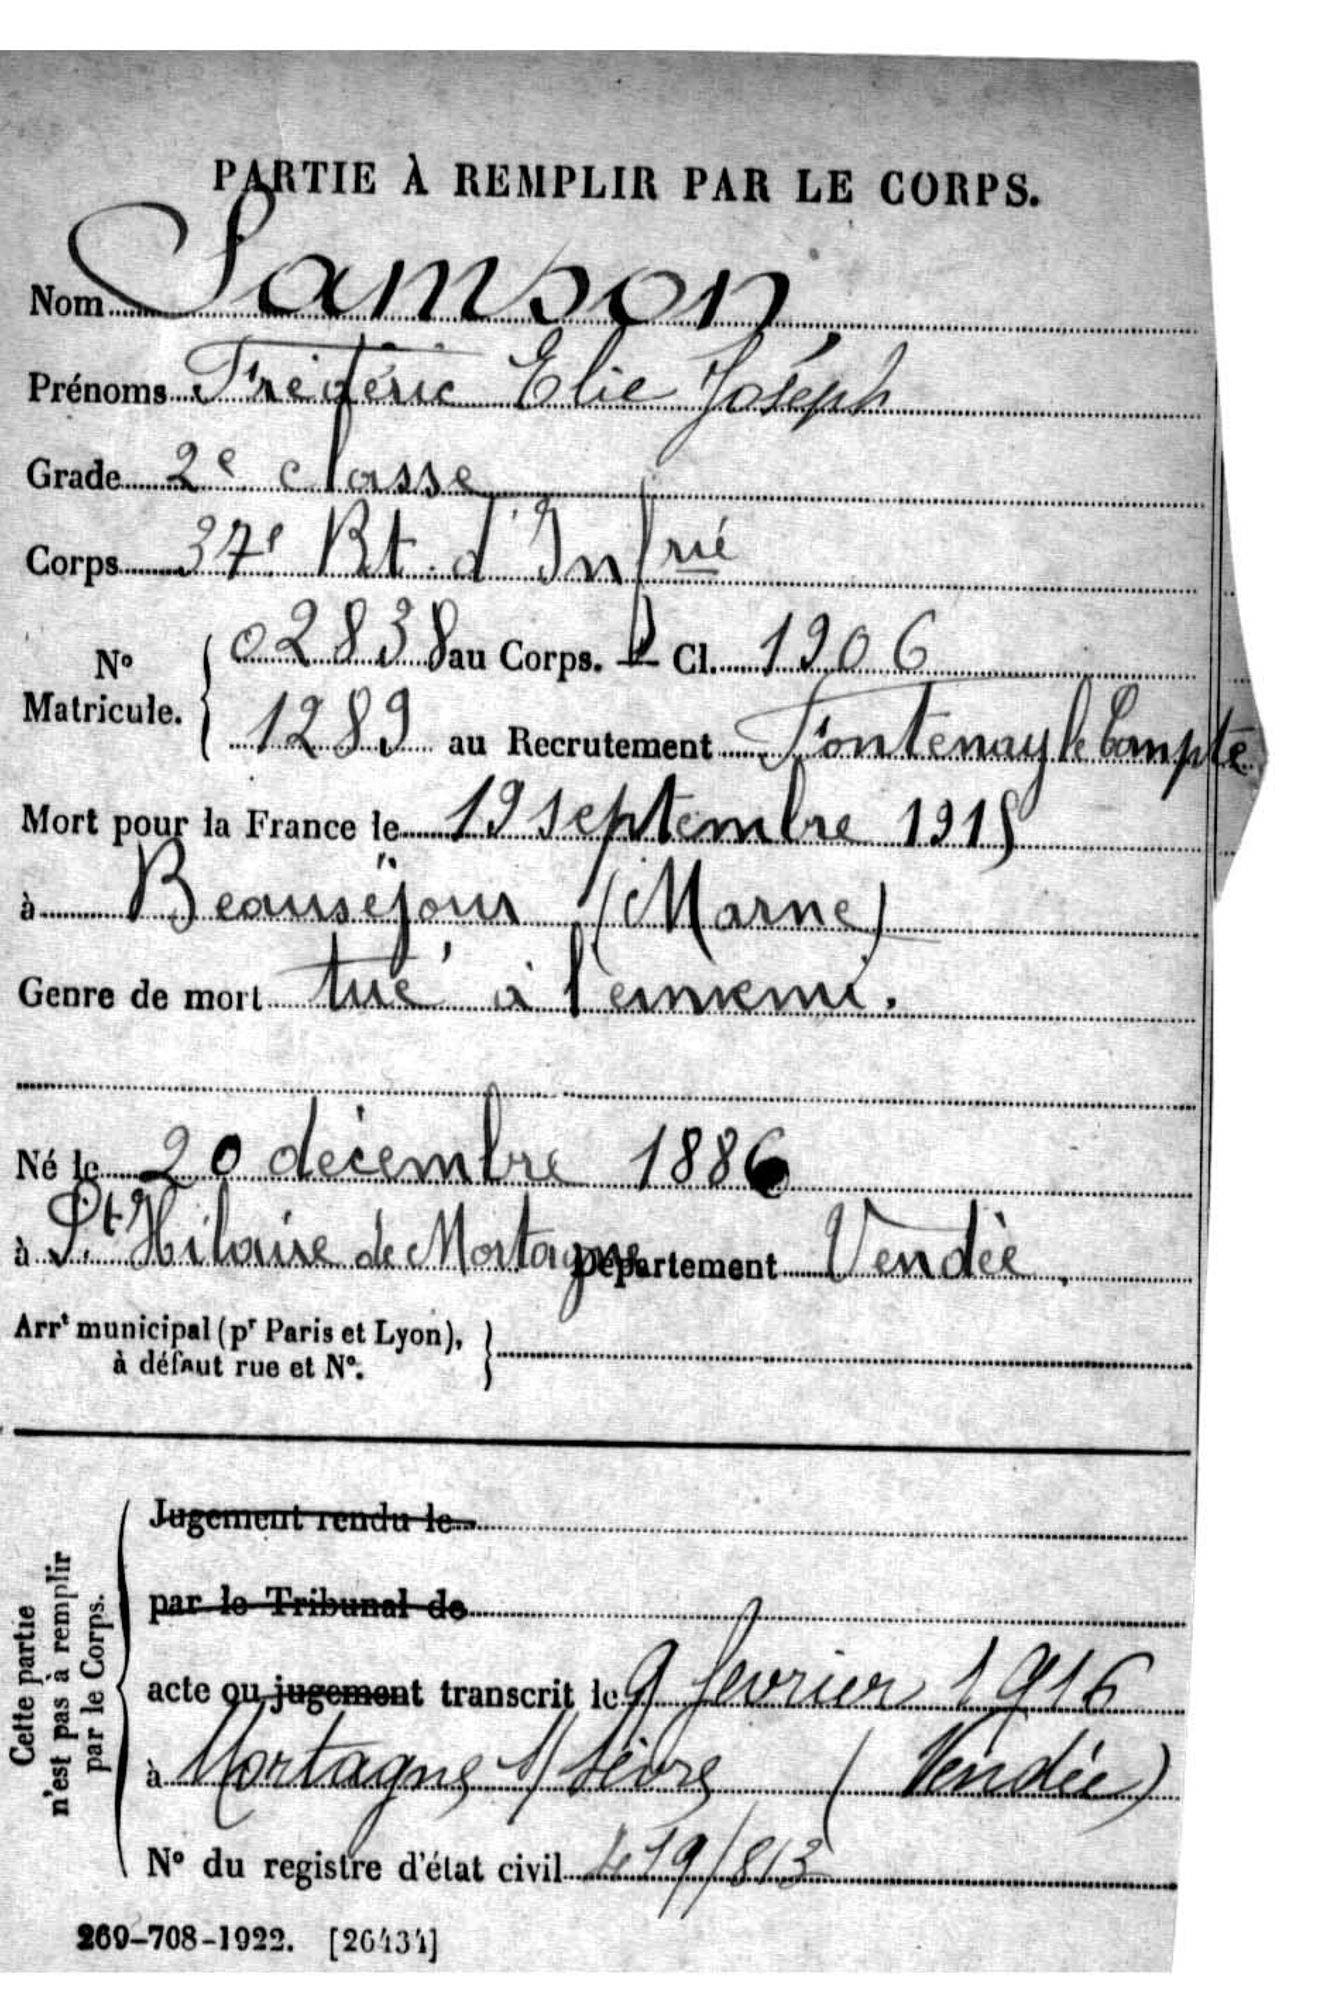 PARTIE À REMPLIR PAR LE CORPS.
Nom Samson,
Prénoms Frédéric Elie Joseph
Grade 2e classe
Corps 37e Rt. d'Infrie
No Matricule. 02838 au Corps. Cl. 1906
1289 au Recrutement Fontenay le Compte
Mort pour la France le 19 septembre 1915
à Beauséjour (Marne)
Genre de mort tué à l'ennemi.
Né le 20 décembre 1886
à St Hilaire de Mortagne Département Vendée.
Arrt municipal (pr Paris et Lyon),
à défaut rue et No.
Cette partie
n'est pas à remplir
par le Corps.
Jugement rendu le
par le Tribunal de
acte ou jugement transcrit le 9 février 1916
à Mortagne s/ Sèvre (Vendée)
No du registre d'état civil 419/813
269-708-1922. [26434]